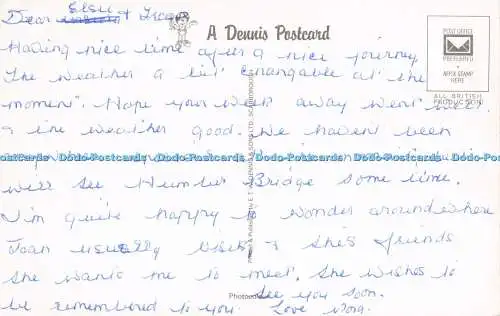 Dear Elsie & Fred
A Dennis Postcard
POST OFFICE
PREFERRED
AFFIX STAMP
HERE
ALL BRITISH
PRODUCTION
Having nice time after a nice journey
The weather a bit changable at the
moment. Hope your week away went well.
& the weather good. We haven't been
Dodo-Postcards Dodo-Postcards Dodo-Postcards Dodo-Postcards Dodo-Postcards
will see Humber Bridge some time.
I'm quite happy to wonder around where
Joan usually visits & she's friends
she wants me to meet. She wishes to
be remembered to you. See you soon.
Love Nora.